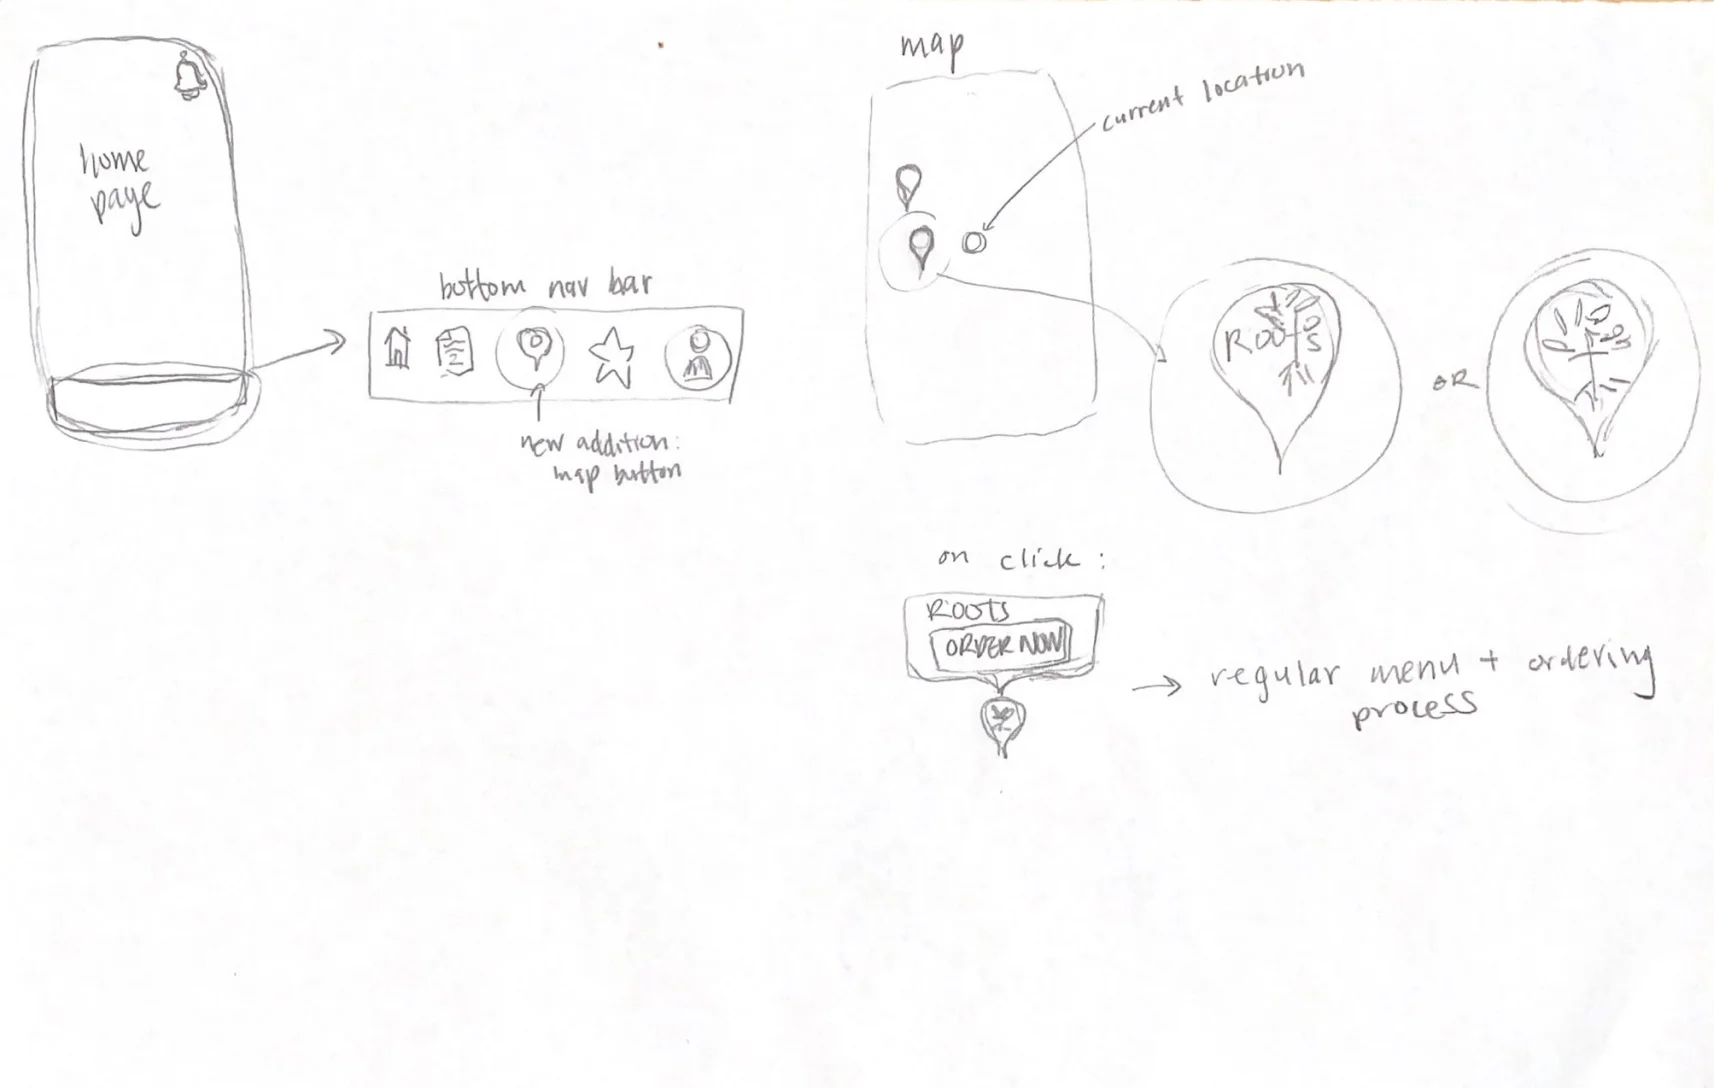 home
page
bottom nav bar
new addition:
map button
map
current location
ROOTS
OR
on click:
ROOTS
ORDER NOW
→ regular menu + ordering
process